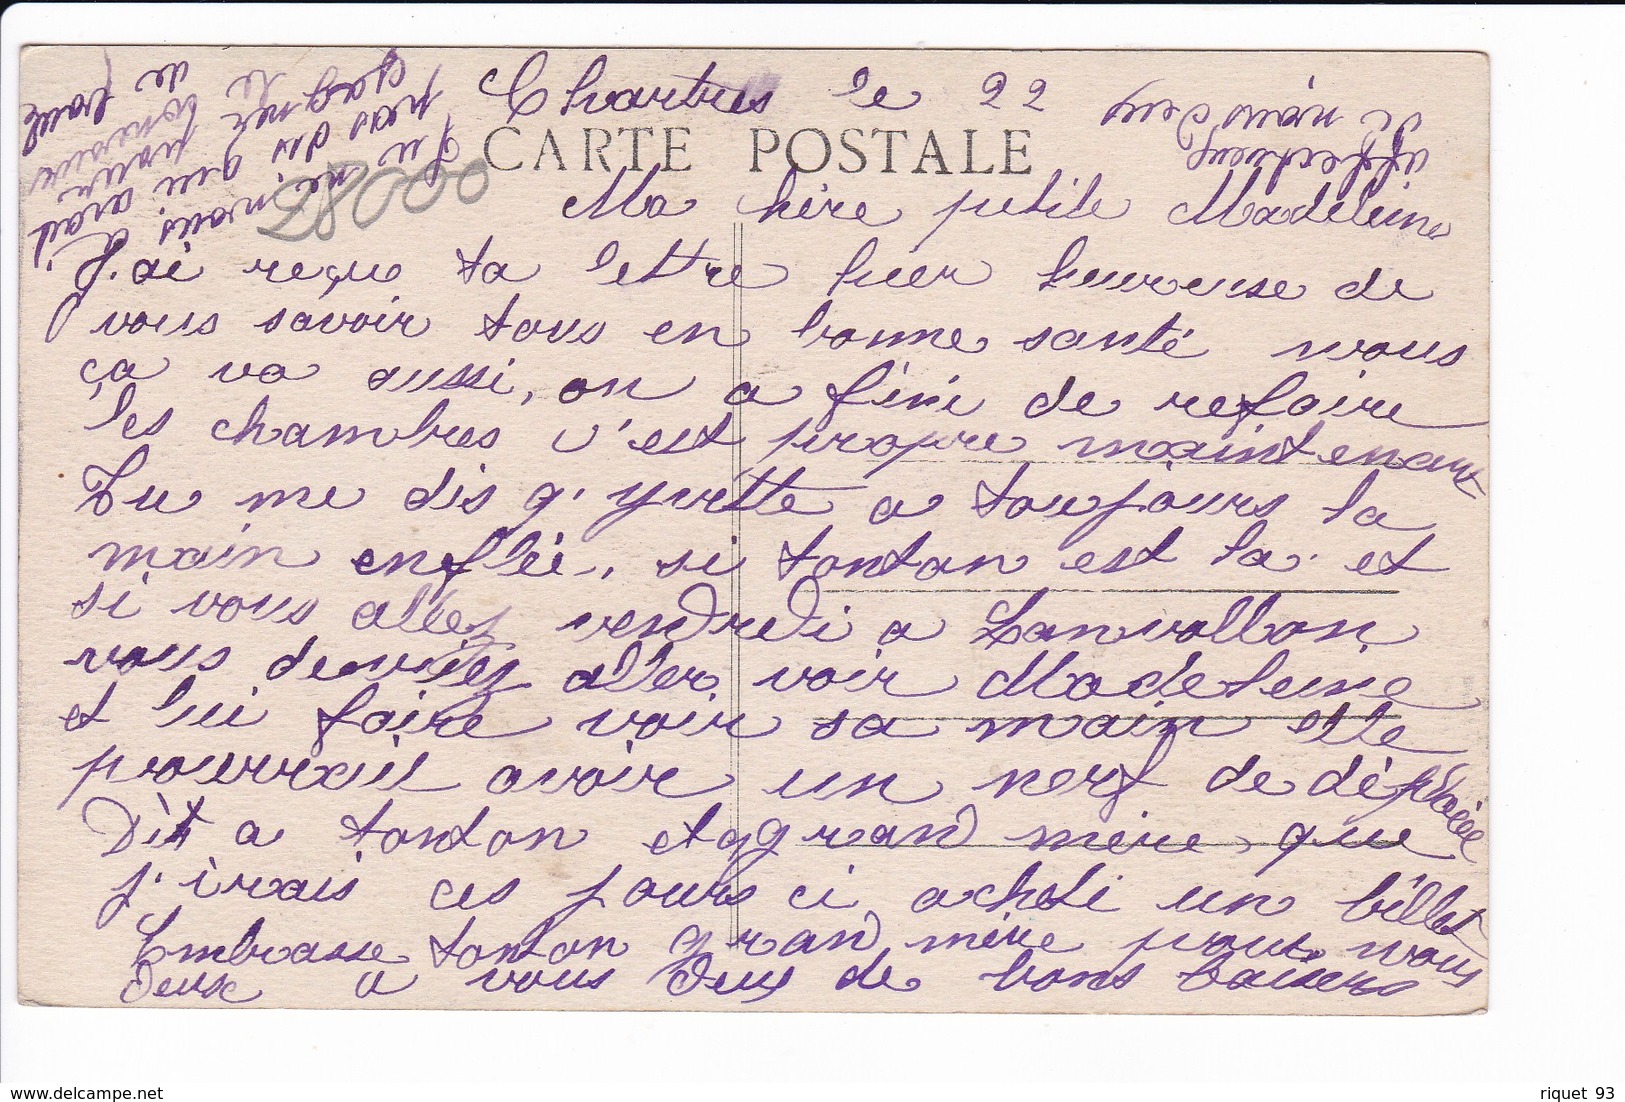 Chartres le 22
CARTE POSTALE
Ma hère petite Madeleine
J'ai reçu ta lettre hier heureuse de
vous savoir tous en bonne santé nous
ça va aussi, on a fini de refaire
les chambres c'est propre maintenant
Tu me dis q' yvette a toujours la
main enflée, si tonton est la et
si vous allez vendredi a Lanvollon
vous devriez aller voir Madeleine
et lui faire voir sa main elle
pourrait avoir un nerf de déplacée
Dit a tonton et a grand mère que
j'irais ces jours ci acheté un billet
Embrasse tonton grand mère pour nous
deux a vous deux de bons baisers
affectueux
de nous deux
Tu ne
pas dis
gagner
le
de
pour
qui
nous avait
58000
riquet 93